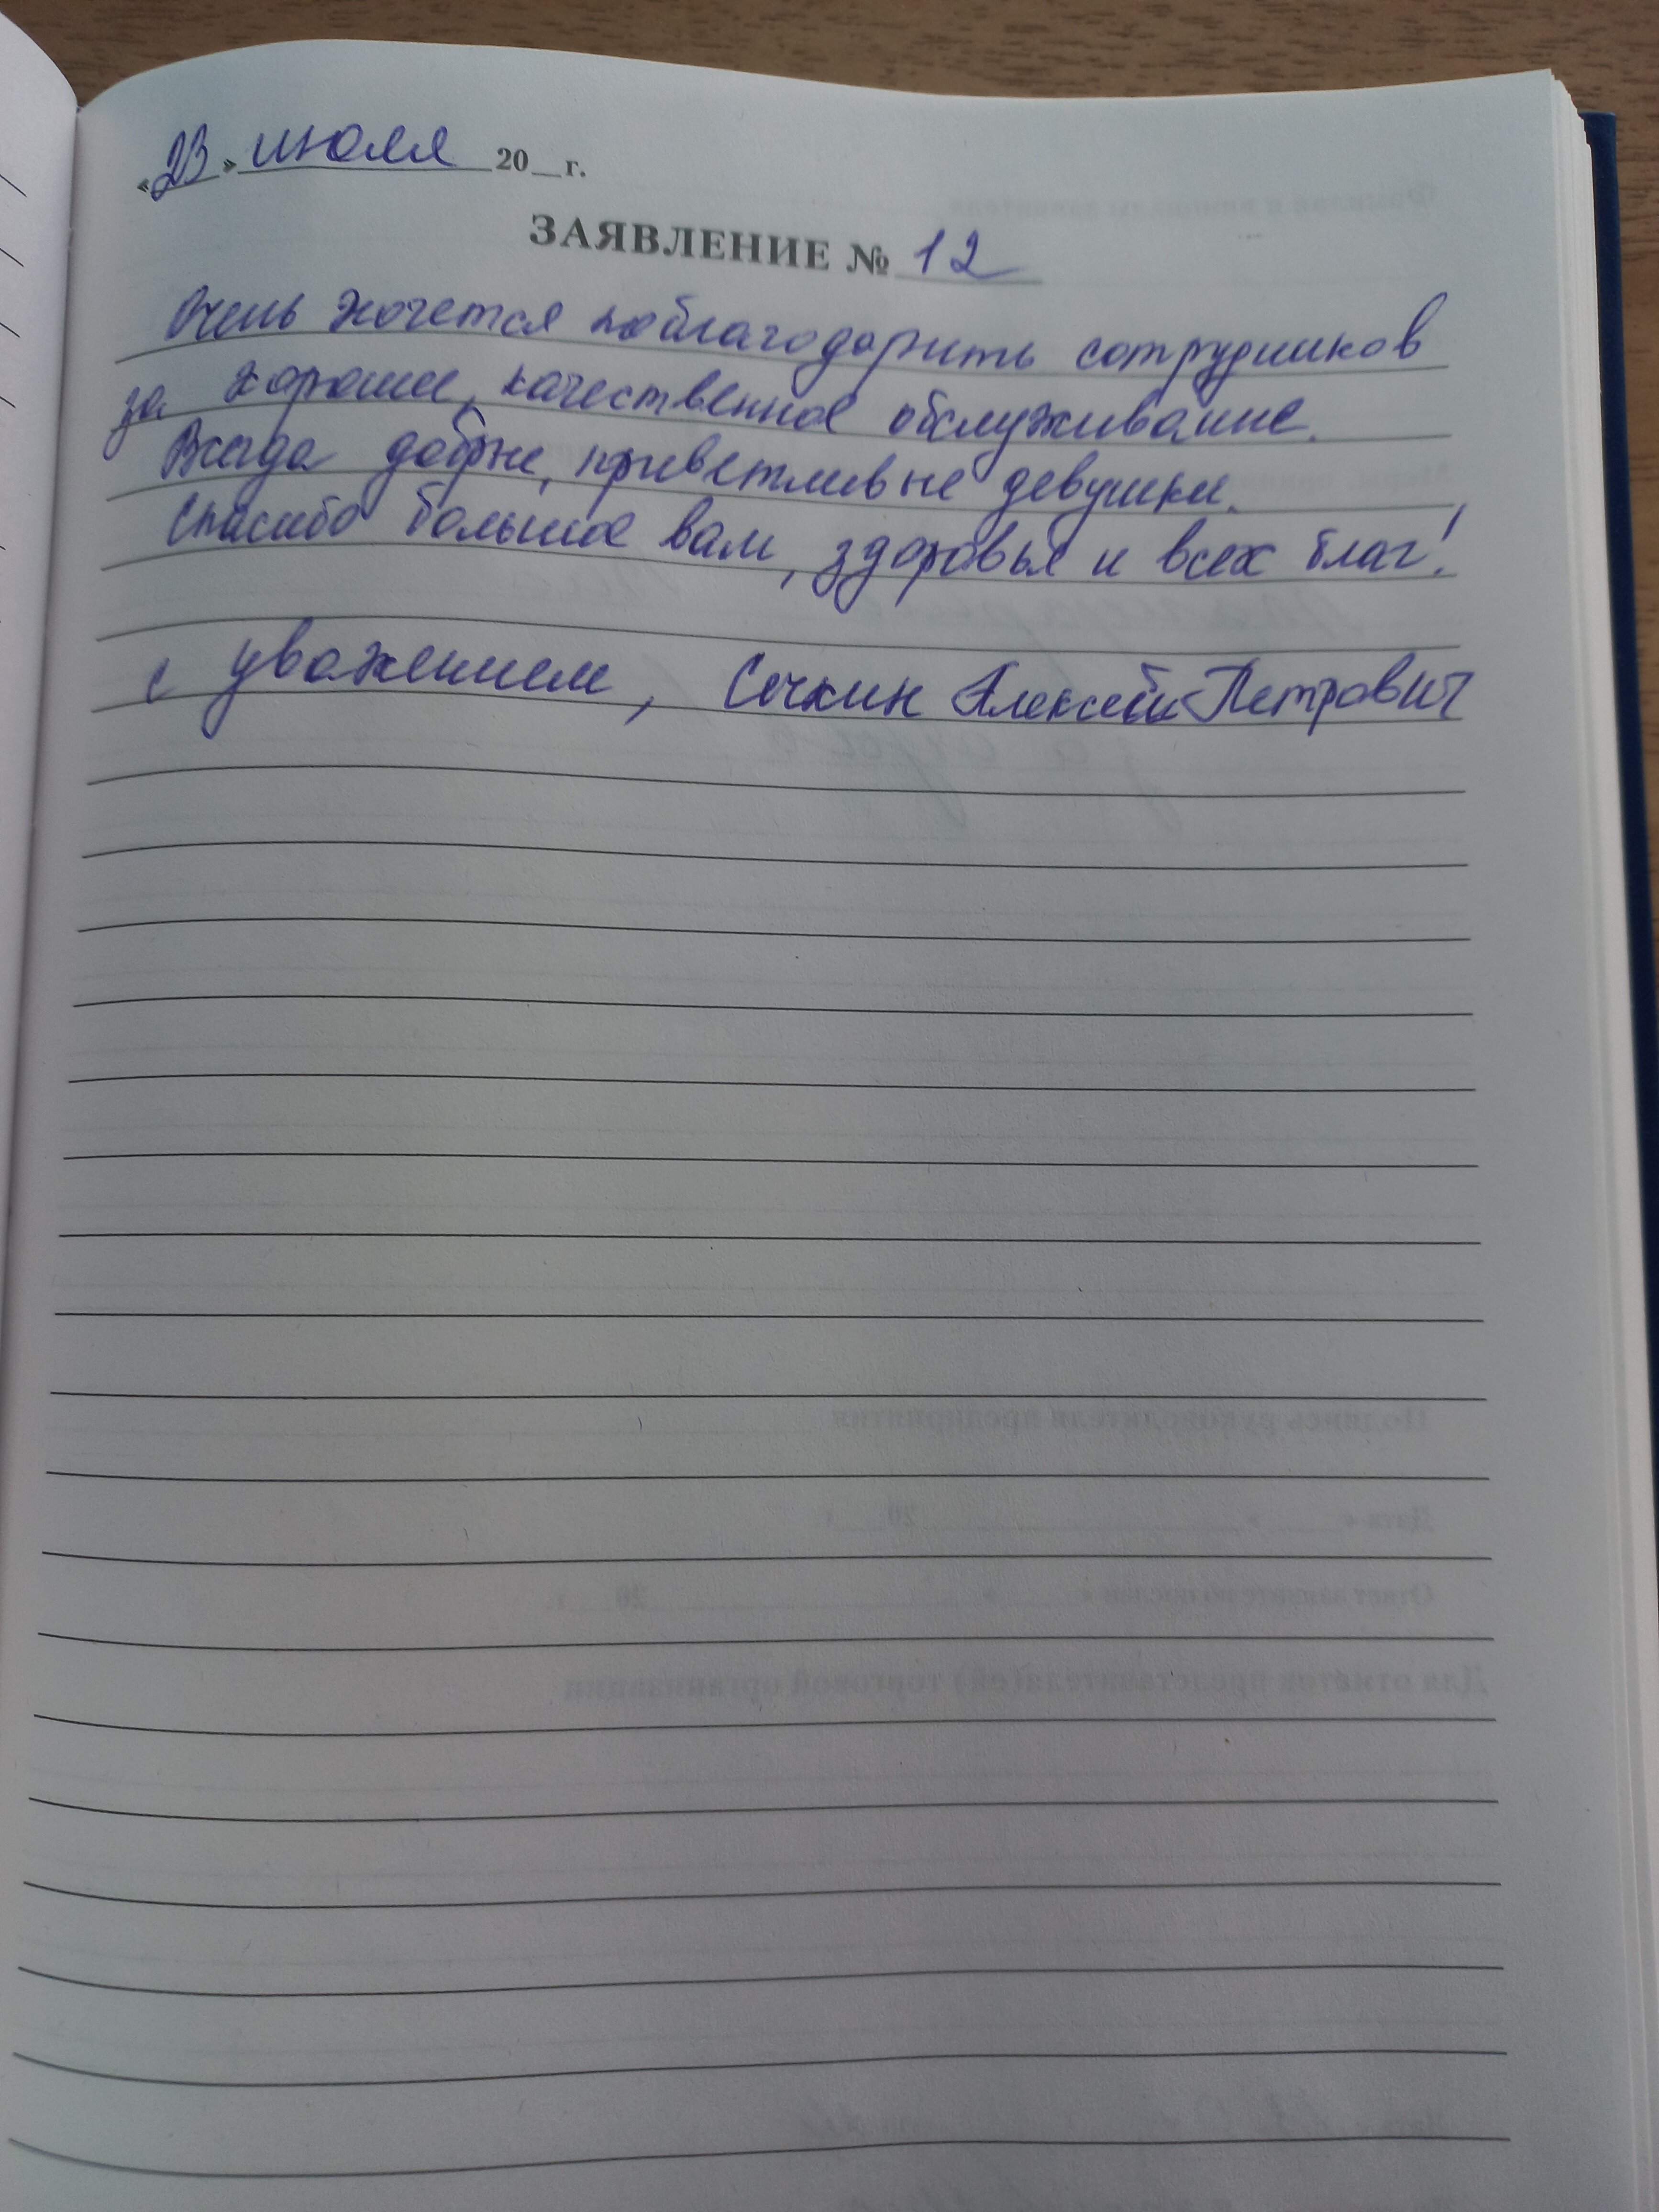 «23» июля 20__г.
ЗАЯВЛЕНИЕ № 12
Очень хочется поблагодарить сотрудников
за хорошее, качественное обслуживание.
Всегда добрые, приветливые девушки.
Спасибо большое вам, здоровья и всех благ!
с уважением, Сечкин Алексей Петрович